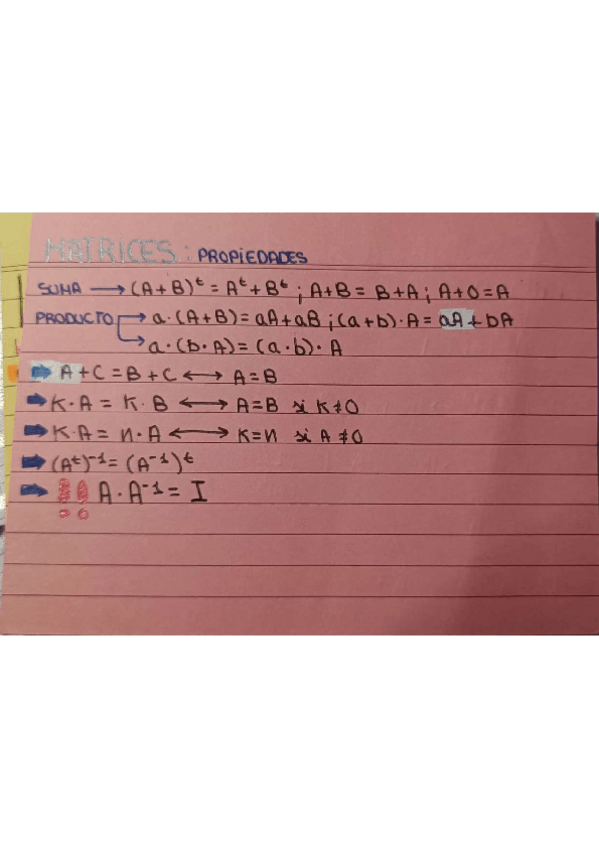 MATRICES: PROPIEDADES
SUMA → (A+B)ᵗ = Aᵗ + Bᵗ ; A+B = B+A ; A+O=A
PRODUCTO → a·(A+B) = aA+aB ; (a+b)·A = aA + bA
→ a·(b·A) = (a·b)·A
➡ A+C = B+C ⟷ A=B
➡ K·A = K·B ⟷ A=B si K≠0
➡ K·A = n·A ⟷ K=n si A≠0
➡ (Aᵗ)⁻¹ = (A⁻¹)ᵗ
➡ !! A·A⁻¹ = I